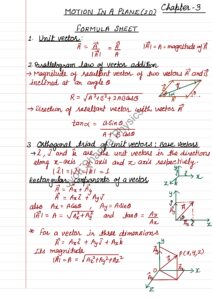 MOTION IN A PLANE (2D) Chapter-3
FORMULA SHEET
1. Unit vector:
Â = A⃗ / |A⃗| = A⃗ / A |A⃗| = A = magnitude of A⃗
2. Parallelogram law of vector addition
→ Magnitude of resultant vector of two vectors A⃗ and B⃗
inclined at an angle θ
R = √A²+B²+2ABCosθ
→ Direction of resultant vector with vector A⃗
tanα = BSinθ / A+BCosθ
3 Orthogonal triad of unit vectors: Base vectors
î, ĵ and k̂ are the unit vectors in the directions
along x-axis, y-axis and z axis respectively.
|î| = |ĵ| = |k̂| = 1
Rectangular components of a vector
A⃗ = A⃗x + A⃗y
A⃗ = Ax î + Ay ĵ
also Ax = ACosθ Ay = ASinθ
|A⃗| = A = √Ax²+Ay² and tanθ = Ay/Ax
* For a vector in three dimensions
A⃗ = Ax î + Ay ĵ + Az k̂
Its magnitude
|A⃗| = A = √Ax²+Ay²+Az²